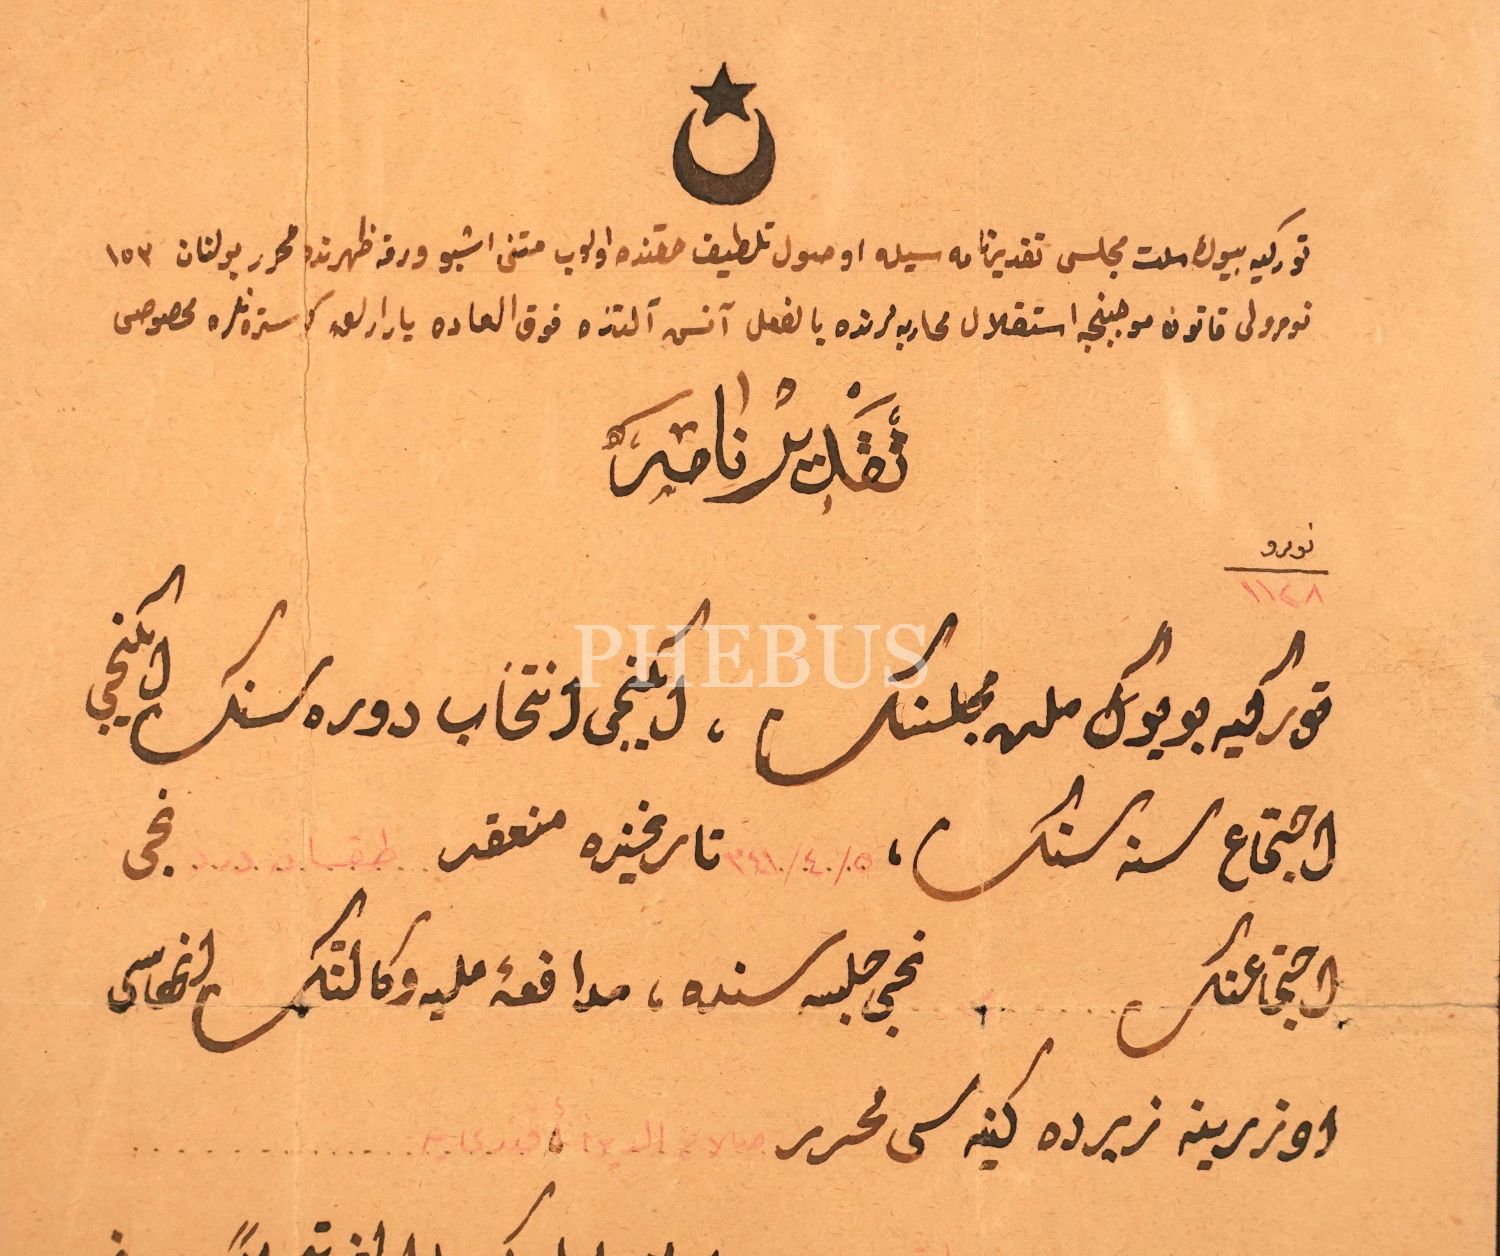 توركيه بيوك ملت مجلسى تقديرنامه سيله اوصول تلطيف حقنده اولوب متنى اشبو ورقه ظهرنده محرر بولنان ١٥٣
نومرولى قانون موجبنجه استقلال محاربه لرنده بالفعل آتش آلتنده فوق العاده يارارلق كوسترنلره مخصوص
تقديرنامه
نومرو
١١٢٨
PHEBUS
توركيه بويوك ملت مجلسنك ، ايكنجى انتخاب دوره سنك ايكنجى
اجتماع سنه سنك ، ٥/٤/٣٤١ تاريخنده منعقد طقسان درد نجى
اجتماعنك نجى جلسه سنده ، مدافعهٔ مليه وكالتنك انهاسى
اوزرينه زيرده كنيه سى محرر صلاح الدين افندى يه